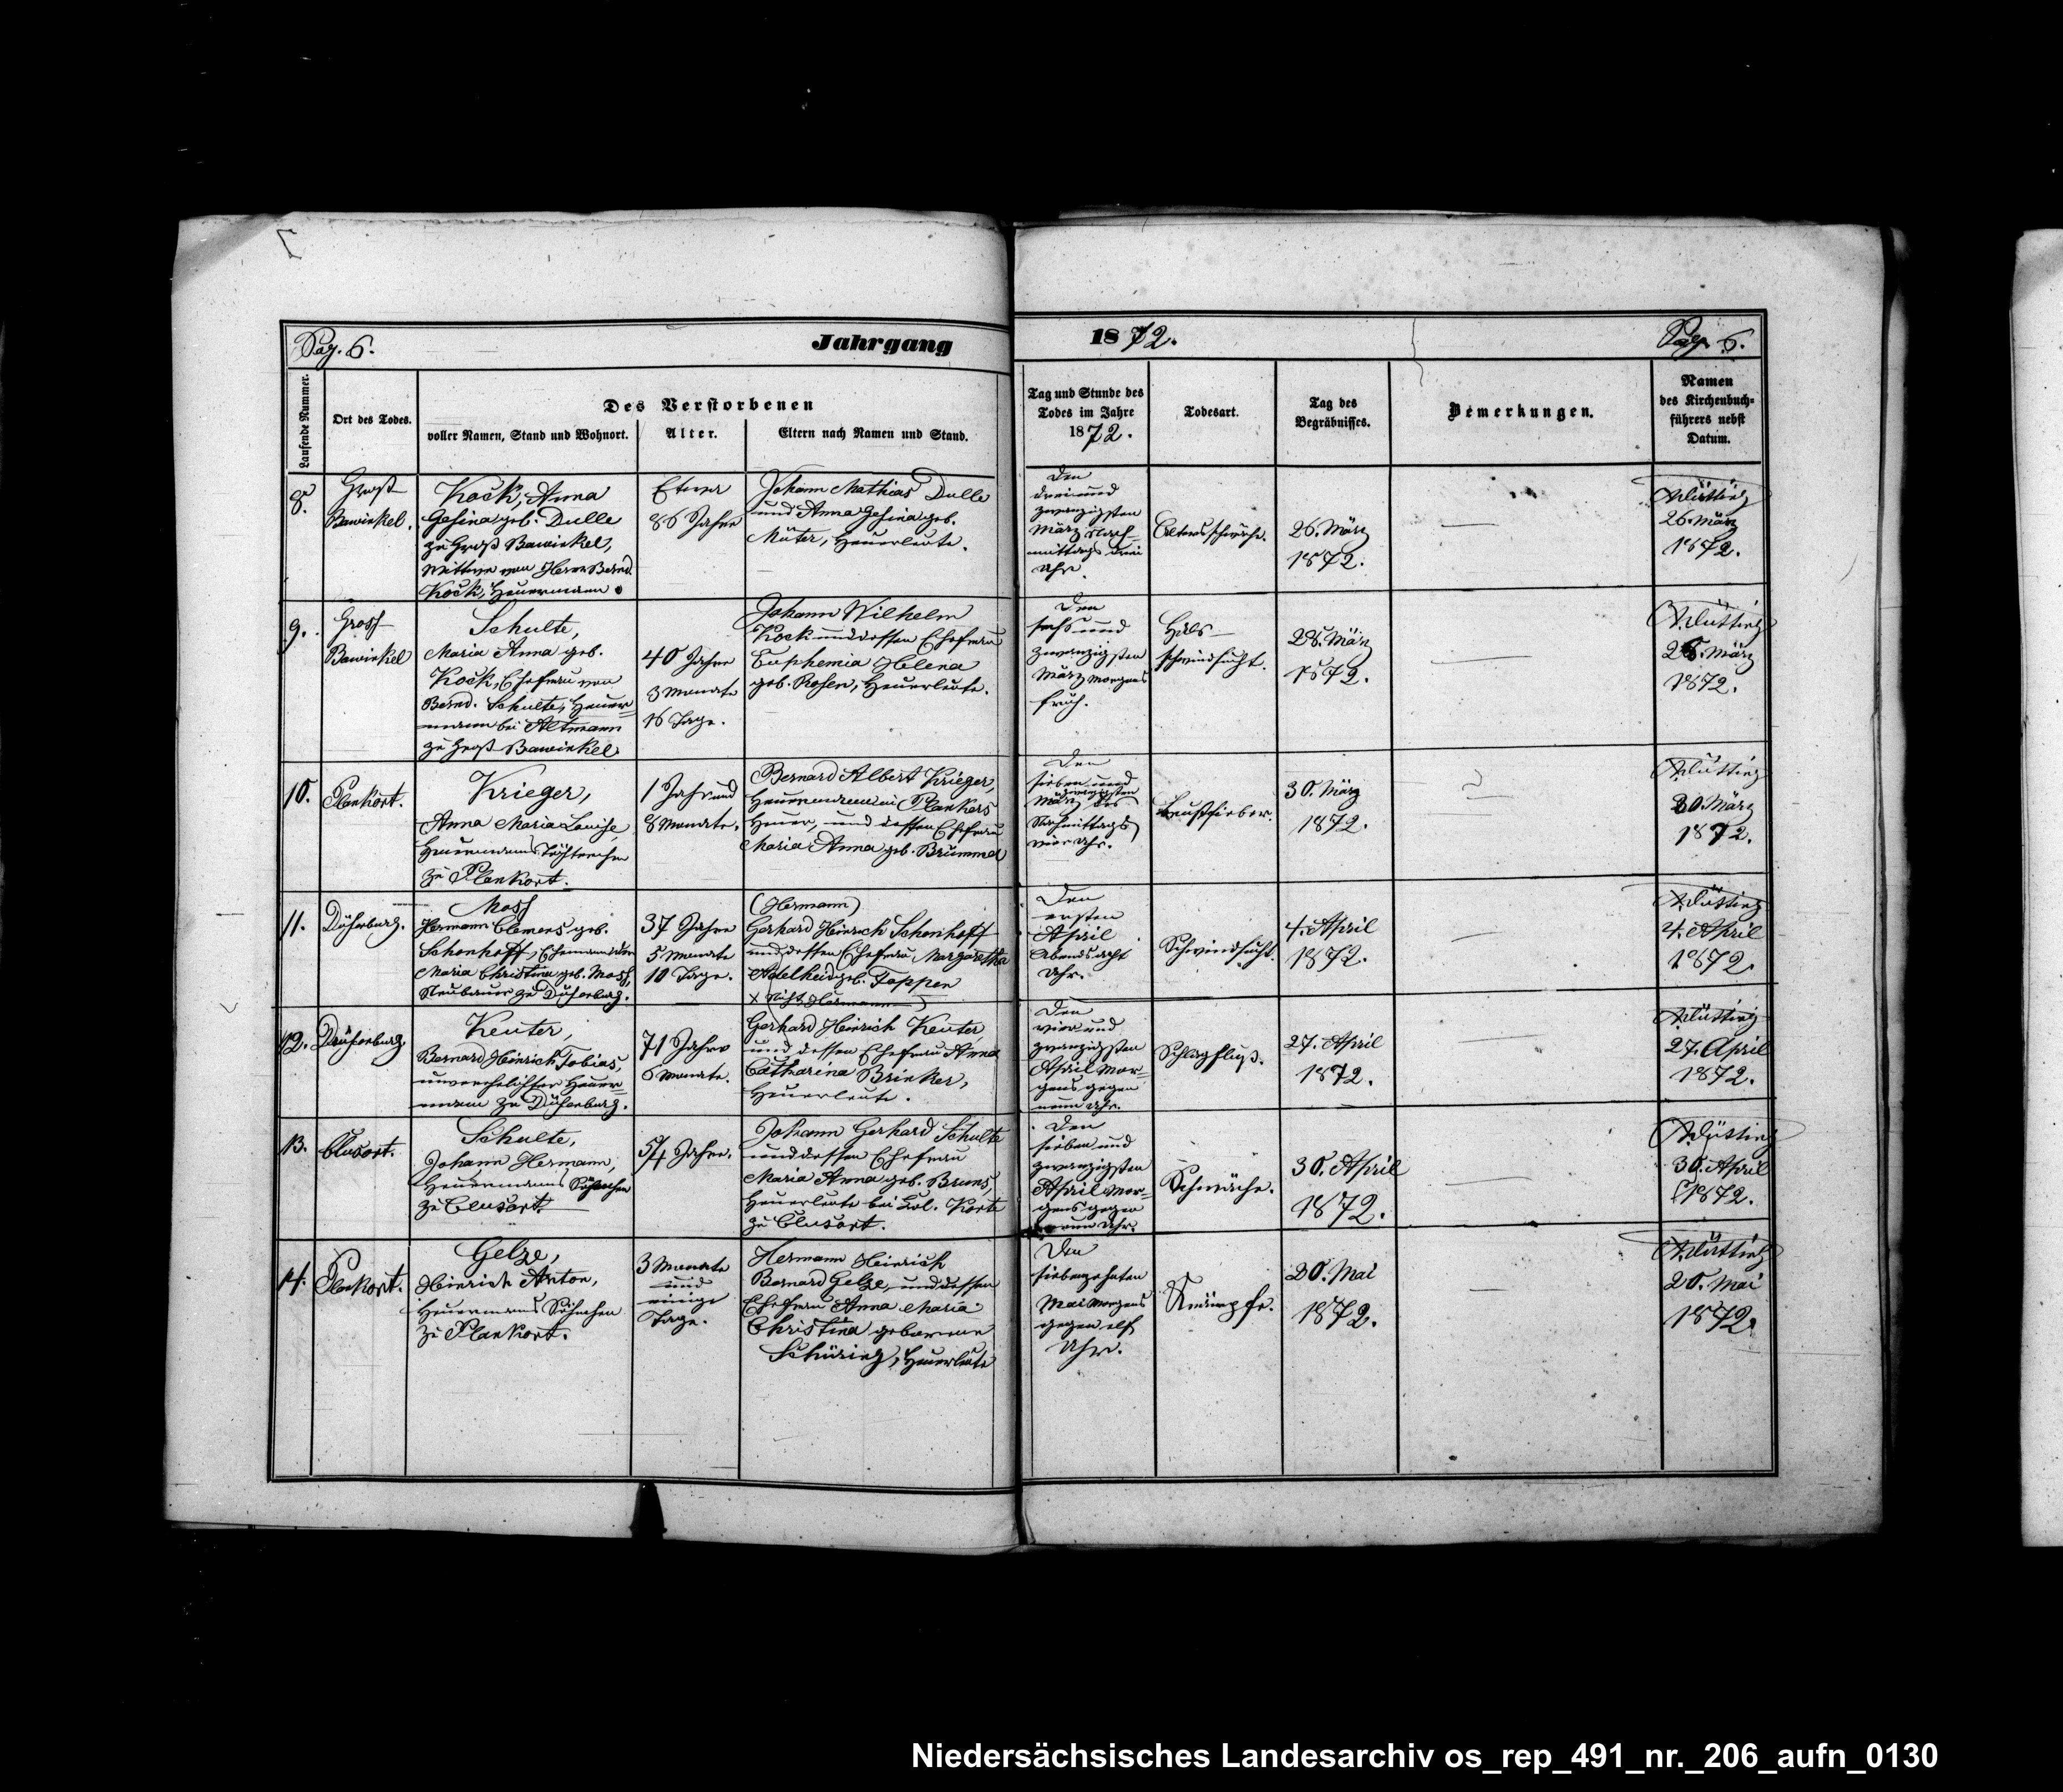 Pag. 6.
Jahrgang
1872.
Pag. 6.
Laufende Nummer.
Ort des Todes.
Des Verstorbenen
voller Namen, Stand und Wohnort.
Alter.
Eltern nach Namen und Stand.
Tag und Stunde des
Todes im Jahre
1872.
Todesart.
Tag des
Begräbnisses.
Bemerkungen.
Namen
des Kirchenbuch-
führers nebst
Datum.
8.
Groß
Bawinkel.
Kock, Anna
Gesina geb. Dulle
zu Groß Bawinkel,
Wittwe von Herm Bernd.
Kock, Heuermann.
Etwa
86 Jahre
Johann Mathias Dulle
und Anna Gesina geb.
Müter, Heuerleute.
Den
dreiund
zwanzigsten
März Nach-
mittags drei
Uhr.
Altersschwäche.
26. März
1872.
26. März
1872.
9.
Gross
Bawinkel
Schulte,
Maria Anna geb.
Kock, Ehefrau von
Bernd. Schulte, Heuer-
mann bei Altmann
zu Groß Bawinkel
40 Jahre
3 Monate
16 Tage.
Johann Wilhelm
Kock und dessen Ehefrau
Euphemia Helena
geb. Rosen, Heuerleute.
Den
sechsund
zwanzigsten
März Morgens
früh.
Hals-
schwindsucht.
28. März
1872.
28. März
1872.
10.
Plankort.
Krieger,
Anna Maria Louise
Heuermanns Töchterchen
zu Plankort.
1 Jahr und
8 Monate.
Bernard Albert Krieger,
Heuermann in Plankers
Heuer, und dessen Ehefrau
Maria Anna geb. Brümmer
Den
sieben und
zwanzigsten
März des
Nachmittags
vier Uhr.
Brustfieber.
30. März
1872.
30. März
1872.
11.
Duhenburg.
Moss
Hermann Clemens geb.
Schonhoff, Ehemann von
Maria Christina geb. Moss,
Neubauer zu Duhenburg.
37 Jahre
5 Monate
10 Tage.
(Hermann)
Gerhard Heinrich Schonhoff
und dessen Ehefrau Margaretha
Adelheid geb. Toppen
x (Nicht Hermann)
Den
ersten
April
Abends acht
Uhr.
Schwindsucht.
4. April
1872.
4. April
1872.
12.
Duhenburg.
Keuter,
Bernard Heinrich Tobias,
unverehelichter Heuer-
mann zu Duhenburg.
71 Jahre
6 Monate.
Gerhard Heinrich Keuter,
und dessen Ehefrau Anna
Catharina Brinker,
Heuerleute.
Den
vier und
zwanzigsten
April Mor-
gens gegen
neun Uhr.
Schlagfluß.
27. April
1872.
27. April
1872.
13.
Clusort.
Schulte,
Johann Hermann,
Heuermanns Söhnchen
zu Clusort.
Jahre.
Johann Gerhard Schulte
und dessen Ehefrau
Maria Anna geb. Bruns,
Heuerleute bei Col. Korte
zu Clusort.
Den
sieben und
zwanzigsten
April Mor-
gens gegen
neun Uhr.
Schwäche.
30. April
1872.
30. April
1872.
14.
Plankort.
Gelze,
Heinrich Anton,
Heuermanns Söhnchen
zu Plankort.
3 Monate
und
einige
Tage.
Hermann Heinrich
Bernard Gelze, und dessen
Ehefrau Anna Maria
Christina geborene
Schüring, Heuerleute
Den
siebenzehnten
Mai Morgens
gegen elf
Uhr.
Krämpfe.
20. Mai
1872.
20. Mai
1872.
Niedersächsisches Landesarchiv os_rep_491_nr._206_aufn_0130